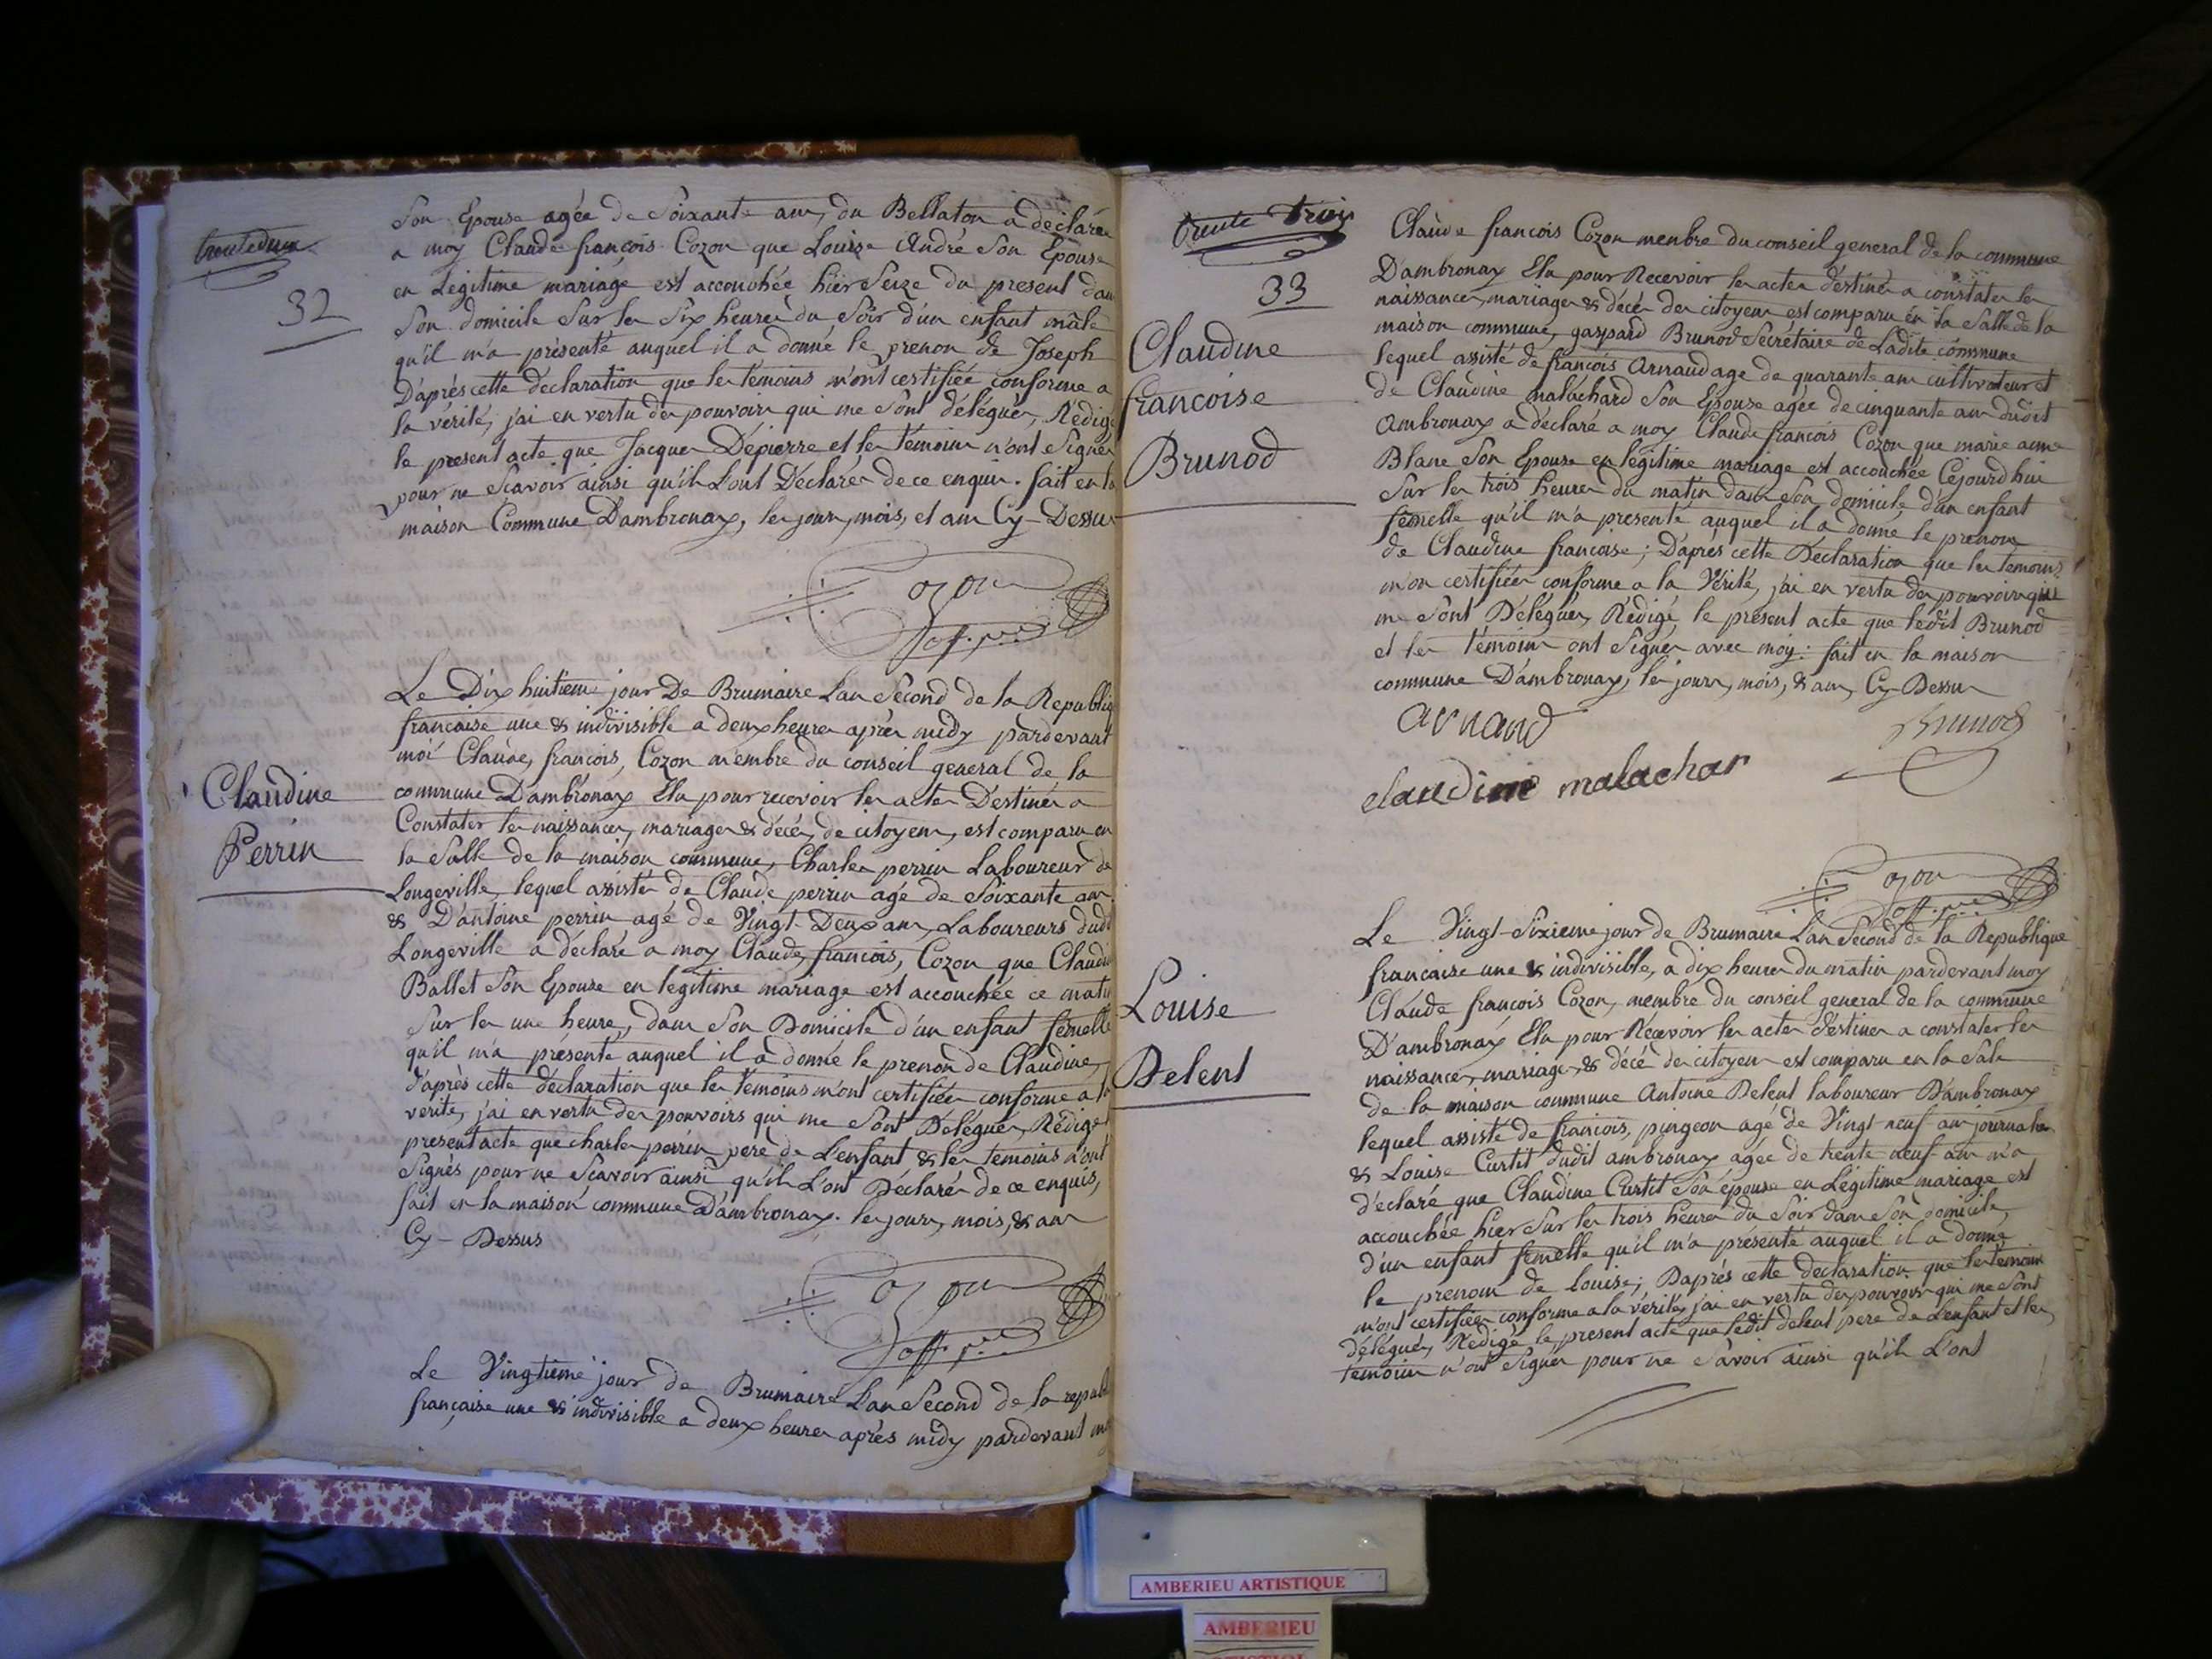 trente deux
32
Son Epouse agée de Soixante ans, du Bellaton a déclaré
a moy Claude françois Cozon que Louise André Son Epouse
en Légitime mariage est accouchée hier Seize du present dans
Son domicile Sur les Six heures du Soir d'un enfant mâle
qu'il m'a présenté auquel il a donné le prenon de Joseph
D'aprés cette déclaration que les témoins m'ont certifiée conforme a
la vérité, j'ai en vertu des pouvoirs qui me Sont délégués, Rédigé
le present acte que Jacques Dépierre et les témoins n'ont Signés
pour ne Sçavoir ainsi qu'ils L'ont Déclarés de ce enquis. fait en la
maison Commune D'ambronay, les jours, mois, et ans Cy-Dessus
Cozon
off. p.
Claudine
Perrin
Le Dix huitieme jour De Brumaire L'an Sécond de la Republiq
française une & indivisible a deux heures aprés midy pardevant
moi Claude, françois, Cozon membre du conseil general de la
commune D'ambronay Elu pour recevoir les actes Destinés a
Constater les naissances, mariages & décés, de citoyens, est comparu en
la Salle de la maison commune, Charles perrin Laboureur de
Longeville, lequel assistés de Claude perrin agé de Soixante ans
& D'antoine perrin agé de Vingt-Deux ans, Laboureurs dudt
Longeville a déclaré a moy Claude, françois, Cozon que Claudi
Ballet Son Epouse en legitime mariage est accouchée ce matin
Sur les une heure, dans Son Domicile d'un enfant fémelle
qu'il m'a présenté auquel il a donné le prenon de Claudine,
d'aprés cette déclaration que les témoins m'ont certifiée conforme a la
verité, j'ai en vertu des pouvoirs qui me Sont Délégués, Rédigé l
present acte que charles perrin pere de L'enfant & les temoins n'ont
Signés pour ne Scavoir ainsi qu'ils L'ont Déclarés de ce enquis,
fait en la maison commune D'ambronay. les jours, mois, & ans
Cy-Dessus
Cozon
off. p.
Le Vingtieme jour de Brumaire L'an Second de la republ
française une & indivisible a deux heures aprés midy pardevant moy
trente trois
33
Claudine
francoise
Brunod
Claude francois Cozon menbre du conseil general de la commune
D'ambronay Elu pour Recevoir les actes déstinés a constater les
naissances, mariages & décés des citoyens est comparu en la Salle de la
maison commune, gaspard Brunod Secrétaire de Ladite commune
lequel assisté de françois Arnaud age de quarante ans cultivateur et
de Claudine malachard Son Epouse agée de cinquante ans dudit
Ambronay a déclaré a moy Claude francois Cozon que marie anne
Blanc Son Epouse en légitime mariage est accouchée Cejourd'hui
Sur les trois heures du matin dans Son domicile, d'un enfant
femelle qu'il m'a presenté auquel il a donné le prenom
de Claudine francoise; D'aprés cette Déclaration que les temoins
m'on certifiée conforme a la Vérité, j'ai en vertu des pouvoirs qui
me Sont Délégués, Rédigé, le présent acte que ledit Brunod
et les témoins ont Signés avec moy: fait en la maison
commune D'ambronay, les jours, mois, & ans, Cy-Dessus
arnaud
Brunod
claudine malachar
Cozon
off. p.
Louise
Delent
Le Vingt-Sixieme jour de Brumaire L'an Sécond de la Republique
francaise une & indivisible, a dix heures du matin pardevant moy
Claude françois Cozon, membre du conseil general de la commune
D'ambronay Elu pour Récevoir les actes déstinés a constater les
naissances, mariages, & décé des citoyens est comparu en la Sale
de la maison commune Antoine Delent laboureur D'ambronay
lequel assisté de françois, pingeon agé de Vingt neuf ans journalier
& Louise Curtit dudit ambronay agée de trente neuf ans m'a
déclaré que Claudine Curtit Son épouse en Légitime mariage est
accouchée hier Sur les trois heures du Soir dans Son domicile,
d'un enfant femelle qu'il m'a présenté auquel il a donné
le prenom de Louise; D'aprés cette declaration que les temoins
m'ont certifiée conforme a la vérité, j'ai en vertu des pouvoirs qui me Sont
délégués, Rédigé le present acte que ledit delent pere de L'enfant et les
temoins n'ont Signés pour ne Savoir ainsi qu'ils L'ont
AMBERIEU ARTISTIQUE
AMBERIEU
ARTISTIQUE